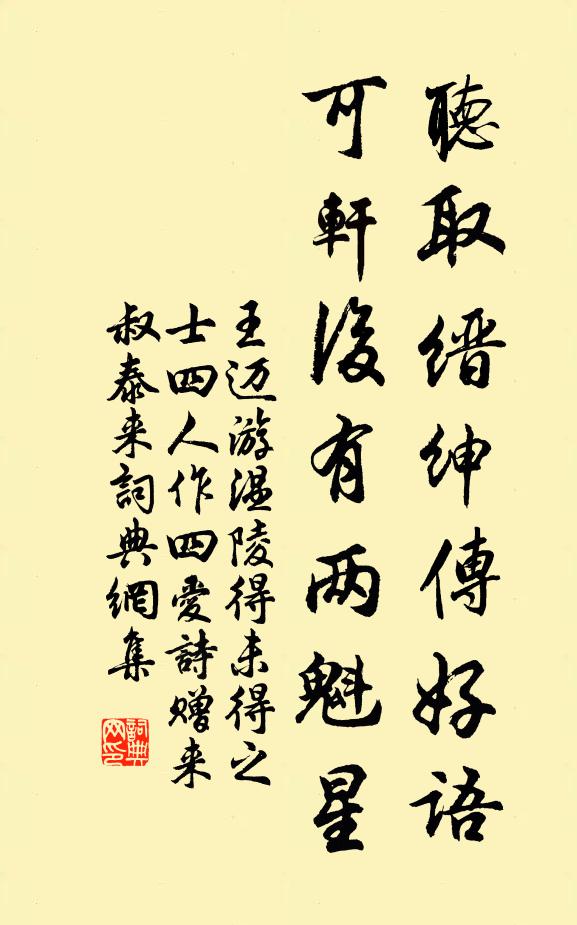 聽取缙紳傳好語
可軒後有两魁星
王迈游温陵得未得之
士四人作四爱詩赠来
叔泰来詞典網集
詞典網印